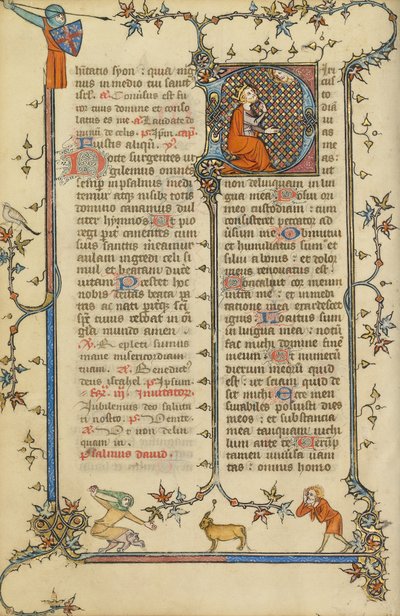 bitatis syon : quia mag
nus in medio tui sanct
isrl. a Conuersus est fu
ror tuus domine et conso
latus es me a Laudate do
minum de celis. ps Ipm. cap.
N octe surgentes ui
gilemus omnes
semp in psalmis medi
temur atqz uiribz totis
domino canamus dul
citer hymnos Vt pio
regi pit canentes cum
suis sanctis mereamur
aulam ingredi celi si
mul et beatam ducere
uitam Prestet hoc
nobis deitas beata pa
tris ac nati pitqz sci
sps cuius resonat in om
gla mundo amen
V Repleti sumus
mane misericordiam
tuam. a Benedictus
deus israhel. ps Ipsum
fer. iii. Inuitator.
Iubilemus deo saluta
ri nostro. ps Venite.
a Ut non delin
quam in.
psalmus dauid.
D ixi cu
sto
diam
ui
as
me
as:
ut
non delinquam in lin
gua mea Posui ori
meo custodiam : cum
consisteret peccator ad
uersum me Obmutui
et humiliatus sum et
silui a bonis : et dolor
meus renouatus est
Concaluit cor meum
intra me : et in medi
tatione mea exardescet
ignis Locutus sum
in lingua mea : notu
fac michi domine fine
meum Et numeru
dierum meoru quid
est : ut sciam quid de
sit michi Ecce men
surabiles posuisti dies
meos : et substantia
mea tanquam nichi
lum ante te Uerup
tamen uniuersa uani
tas : omnis homo